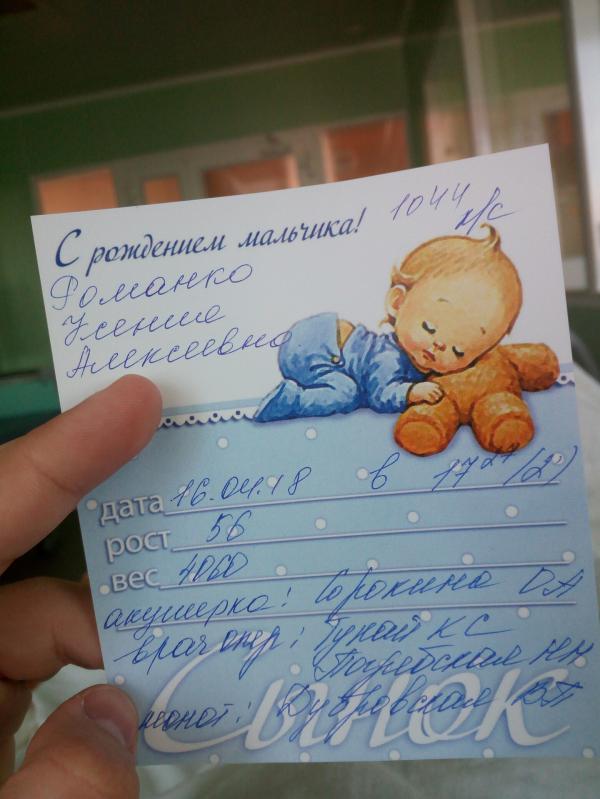 С рождением мальчика!
1044
н/с
Романко
Ксения
Алексеевна
дата 16.04.18 в 17 (2)
рост 56
вес 4060
акушерка: Сорокина ОА
врач КС
Сынок
неонат: Дубровская ВП